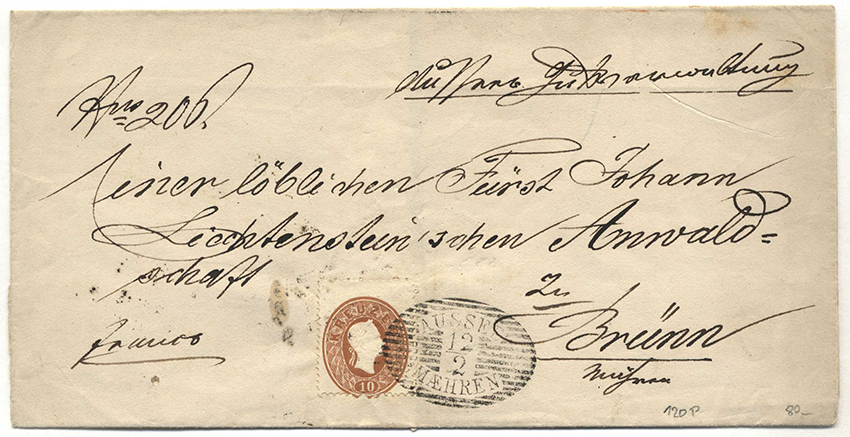 Ausseer Gutsverwaltung
Nro 206.
Einer löblichen Fürst Johann
Liechtenstein'schen Anwald=
schaft
zu
Brünn
Mähren
franco
KREUZER
10
AUSSEE
12
2
MÆHREN
120P
80_